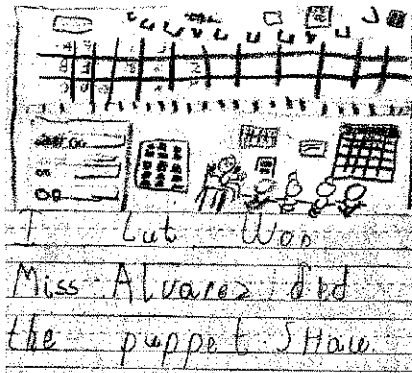 I Lut Won
Miss Alvarez did
the puppet SHow